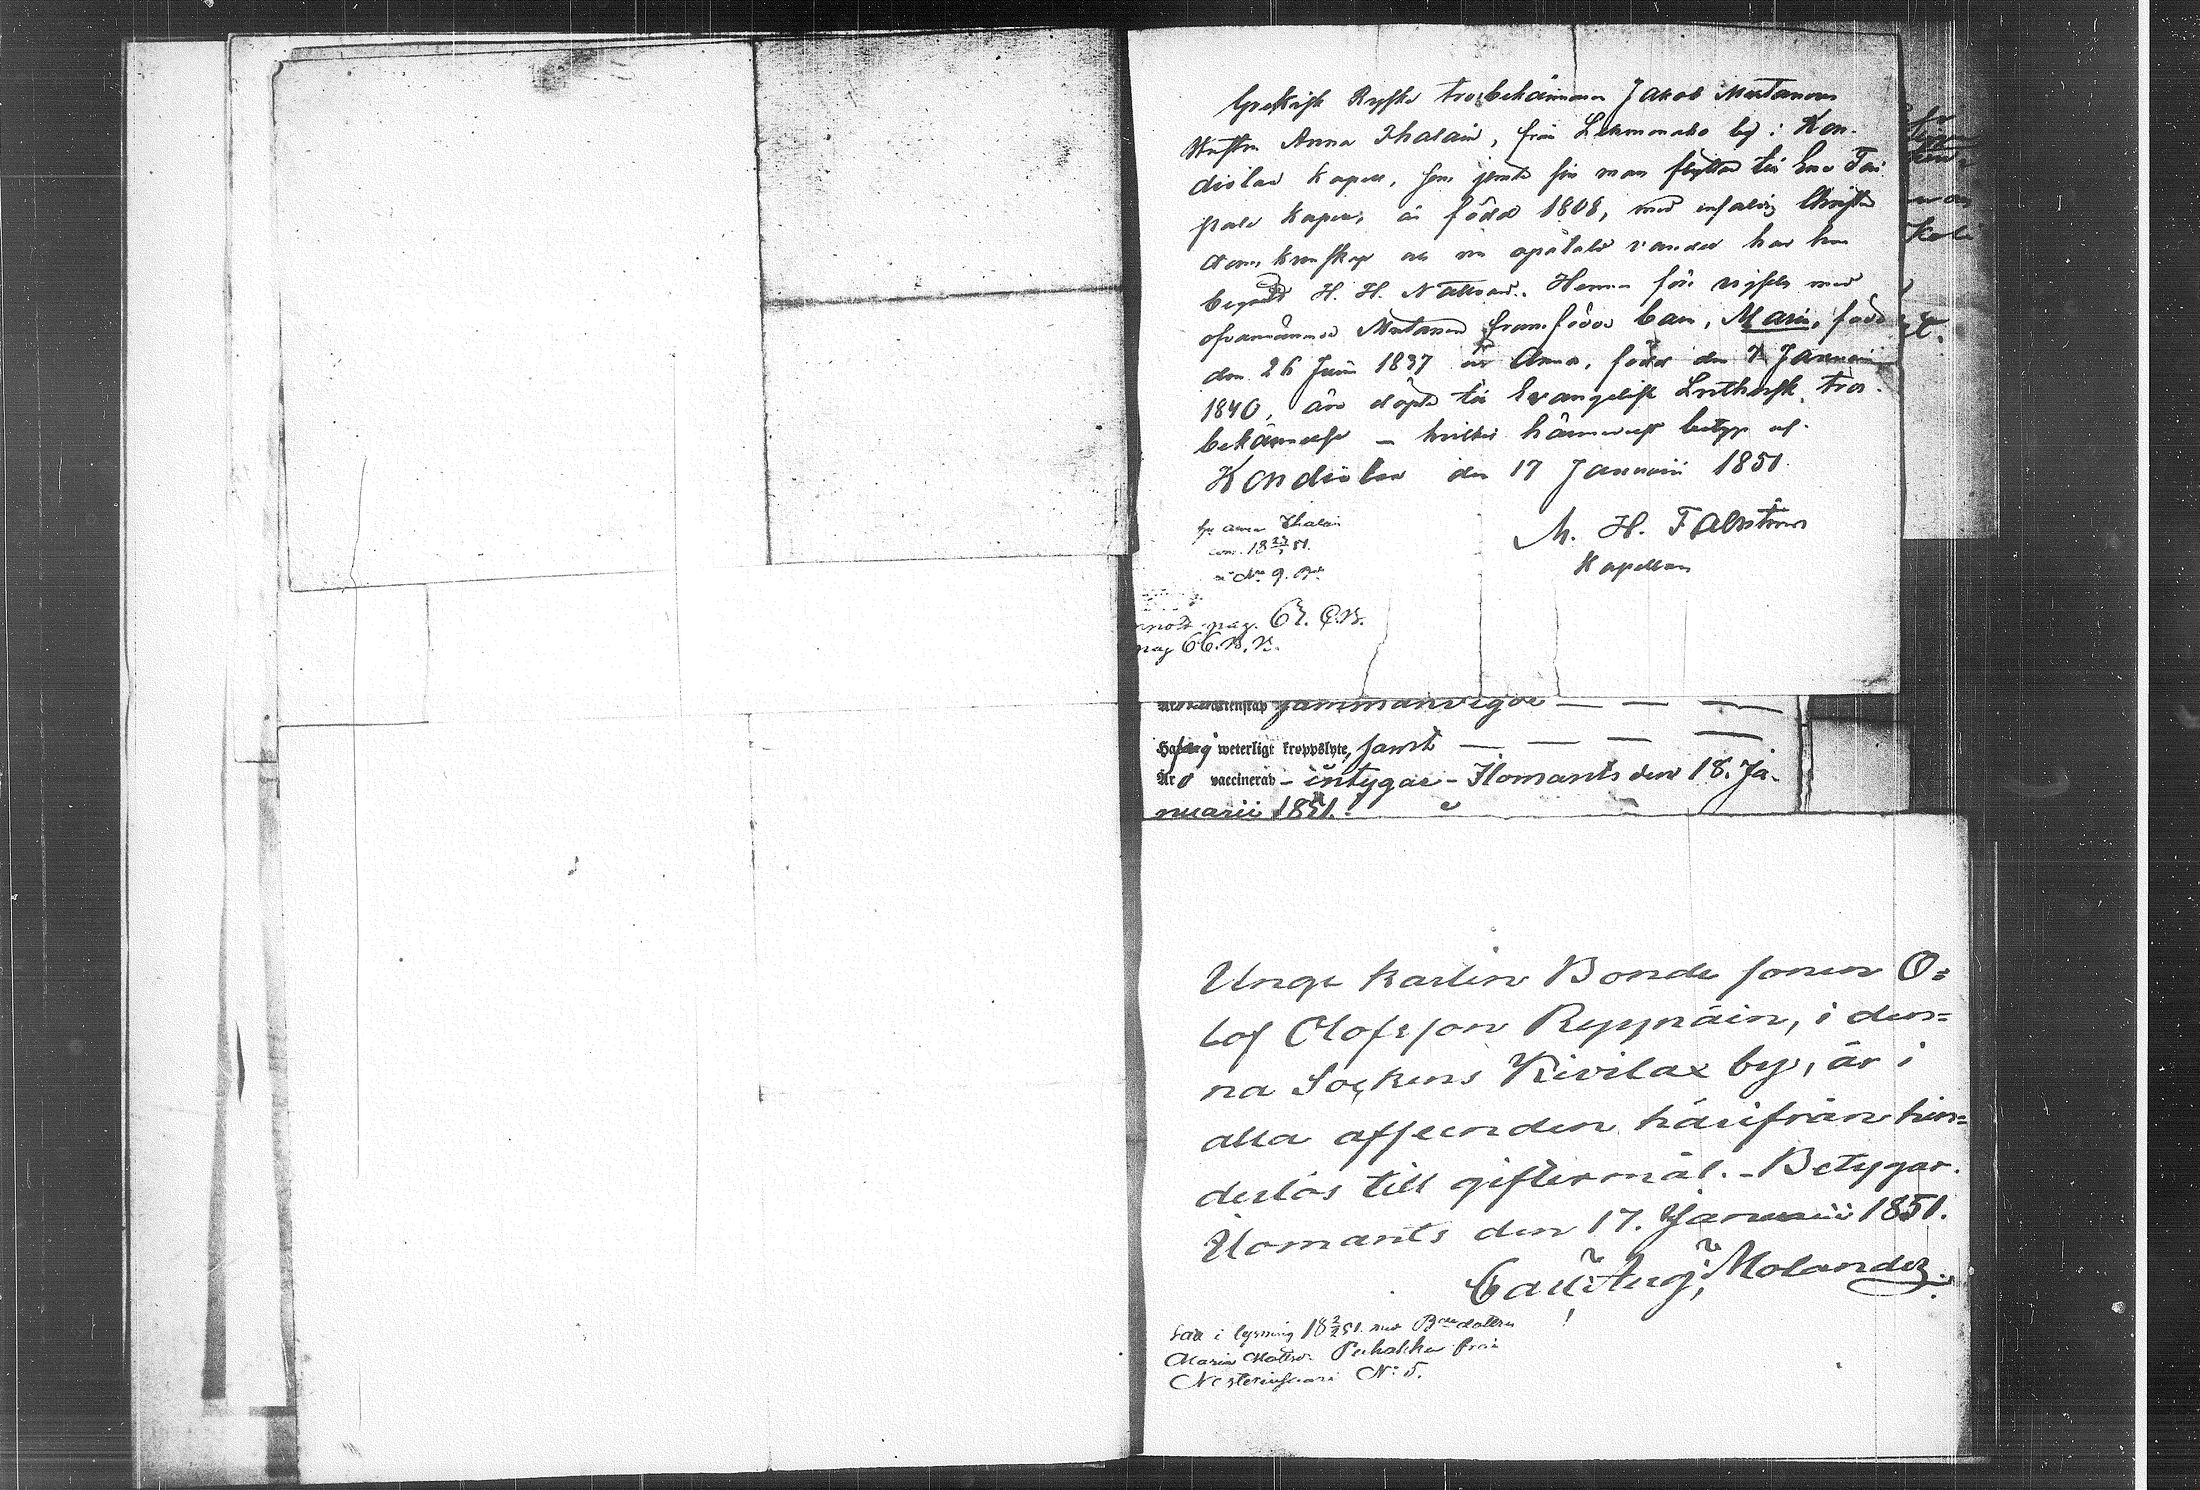 Grekisk Ryska trosbekännaren Jakob Mustanens
Hustru Anna Ihalain, från Lehmonaho by i Kon-
diolax kapell, som jemte sin man flyttar till Eno
kapell, är född 1808, med enfaldig Christen
doms kunskap och en opåtalt vandel har hon
begått H. H. Nattvard. Hennes före vigseln med
ofvannämnde Mustanen framfödde barn, Maria, född
den 26 Junii 1837 och Anna, född den 7 Januarii
1840, äro döpte till Evangelisk Luthersk tros-
bekännelse – hvilket härmedelst betygas af.
Kondiolax den 17 Januarii 1851.
M. H. Fabritius
Kapellan
Anna Ihalain
N:o 9.
pag. 67. C.B.
pag 66. N. B.
sammanvigde — — —
weterligt kroppslyte, samt — — — —
Är vaccinerad – intygar – Ilomants den 18. Ja-
nuarii 1851.
Unge karlen Bonde sonen O=
lof Olofsson Ryynäin, i den=
na Sockens Kivilax by, är i
alla afseenden härifrån hin=
derlös till giftermål. – Betygar.
Ilomants den 17. Januarii 1851.
Carl Aug: Molander.
i lysning 18 2/2 51. med Bdedottren
Maria Mattsdr Puhakka från
N: 5.